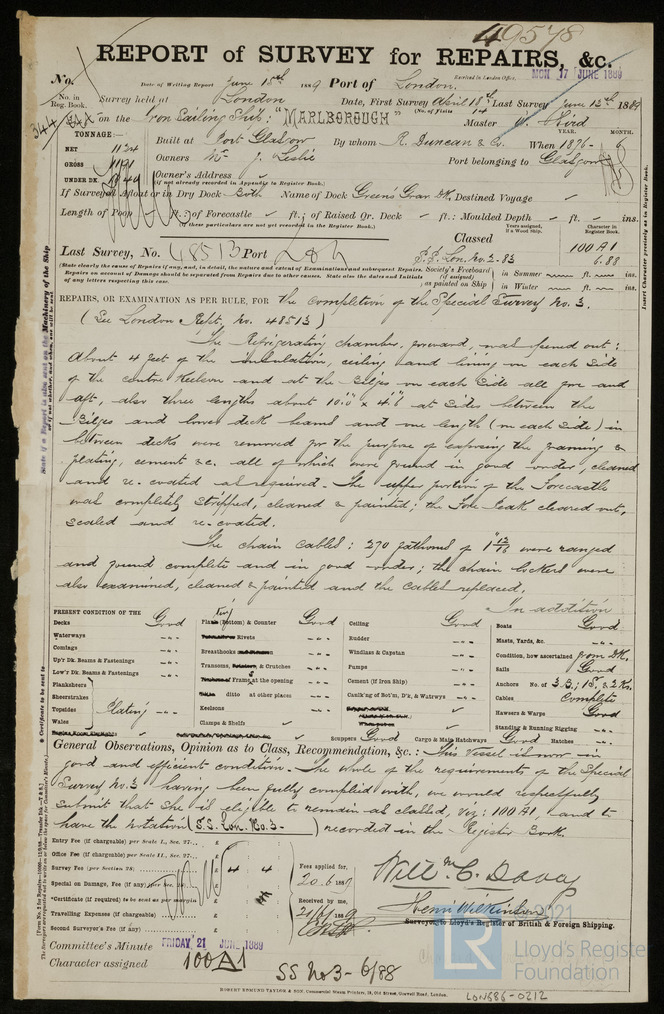 49578
REPORT of SURVEY for REPAIRS, &c.
No. Date of Writing Report June 15th 1889 Port of London. Received in London Office, MON 17 JUNE 1889
No. in Reg. Book. Survey held at London Date, First Survey April 18th Last Survey June 12th 1889
344 on the Iron Sailing Ship: "MARLBOROUGH" (No. of Visits 14) Master W. Hird
TONNAGE:—
NET 1124
GROSS 1191
UNDER DK
Built at Port Glasgow By whom R. Duncan & Co. When 1876 - 6 YEAR. MONTH.
Owners Mr J. Leslie Port belonging to Glasgow
Owner's Address
(If not already recorded in Appendix to Register Book.)
If Surveyed Afloat or in Dry Dock Both Name of Dock Green's Grav. Dk. Destined Voyage
Length of Poop ft.; of Forecastle ft.; of Raised Qr. Deck ft.: Moulded Depth ft. ins.
(If these particulars are not yet recorded in the Register Book.)
Years assigned, if a Wood Ship. Character in Register Book.
Last Survey, No. 48513 Port Lon Classed 100 A1
S.S. Lon. No. 2-83 6.88
(State clearly the cause of Repairs if any, and, in detail, the nature and extent of Examinations and subsequent Repairs.
Repairs on account of Damage should be separated from Repairs due to other causes. State also the dates and Initials
of any letters respecting this case.
Society's Freeboard (if assigned) as painted on Ship in Summer ft. ins.
in Winter ft. ins.
REPAIRS, OR EXAMINATION AS PER RULE, FOR the completion of the Special Survey No. 3.
(See London Rept. No. 48513)
The Refrigerating chamber, forward, was opened out:
About 4 feet of the insulation, ceiling and lining on each side
of the centre Keelson and at the Bilges on each side all fore and
aft, also three lengths about 10'.0" x 4'.6" at sides between the
Bilges and lower deck beams and one length (on each side) in
between decks were removed for the purpose of exposing the framing &
plating, cement &c. all of which were found in good order, cleaned
and re-coated as required. The upper portion of the Forecastle
was completely stripped, cleaned & painted; the Fore Peak cleared out,
scaled and re-coated.
The chain cables: 270 fathoms of 1 12/16 were ranged
and found complete and in good order; the chain lockers were
also examined, cleaned & painted and the cables replaced.
In addition
PRESENT CONDITION OF THE
Decks Good
Waterways
Comings
Up'r Dk. Beams & Fastenings
Low'r Dk. Beams & Fastenings
Planksheers
Sheerstrakes
Topsides Plating
Wales
Plating (Bottom) & Counter Good
Rivets
Breasthooks
Transoms, & Crutches
Frames at the opening
ditto at other places
Keelsons
Clamps & Shelfs
Ceiling Good
Rudder
Windlass & Capstan
Pumps
Cement (if Iron Ship)
Caulk'g of Bot'm, D'k, & Watrwys
Scuppers Good Cargo & Main Hatchways Good Hatches
Boats Good
Masts, Yards, &c.
Condition, how ascertained from Dk.
Sails Good
Anchors No. of 3 B.; 1 St. & 2 Ks.
Cables Complete
Hawsers & Warps Good
Standing & Running Rigging
General Observations, Opinion as to Class, Recommendation, &c.: This Vessel is now in
good and efficient condition. The whole of the requirements of the Special
Survey No. 3 having been fully complied with, we would respectfully
submit that she is eligible to remain as classed, viz: 100 A1, and to
have the notation (S.S. Lon. No. 3-) recorded in the Register Book.
Entry Fee (if chargeable) per Scale I., Sec. 27... £
Office Fee (if chargeable) per Scale II., Sec. 27... £
Survey Fee (per Section 28) £ 4 4
Special on Damage, Fee (if any) (per Sec. 28) £
*Certificate (if required) to be sent as per margin £
Travelling Expenses (if chargeable) £
Second Surveyor's Fee (if any) £
Fees applied for,
20.6.1889
Received by me,
21/6/1889
Will M. C. Davey
Henri Wilkinson
Surveyor to Lloyd's Register of British & Foreign Shipping.
Committee's Minute FRIDAY 21 JUNE 1889
Character assigned 100 A1
SS No 3 - 6/88
ROBERT EDMUND TAYLOR & SON, Commercial Steam Printers, 19, Old Street, Goswell Road, London.
LON586-0212
© 2021
LR
Lloyd's Register
Foundation
Insert Character precisely as in Register Book.
State if a Report is also sent on the Machinery of the Ship
* Certificate to be sent to